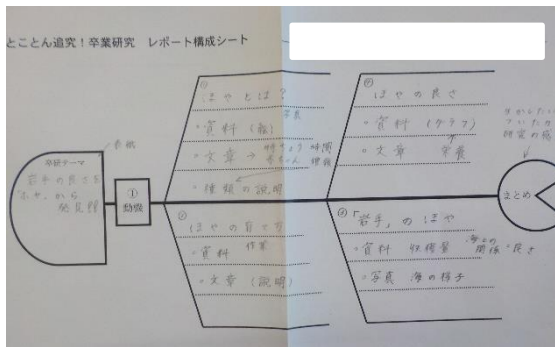 とことん追究！卒業研究　レポート構成シート
表紙
卒研テーマ
岩手の良さを
ホヤ、から
発見隊
①
動機
②
ほやとは？
写真
・資料（絵）
・文章→
時間
・種類の説明
③
ほやの育て方
・資料
作業
・文章（説明）
ほやの良さ
・資料（グラフ）
・文章　栄養
「岩手」のほや
・資料　収穫量
海との
関係
・良さ
・写真　海の様子
まとめ